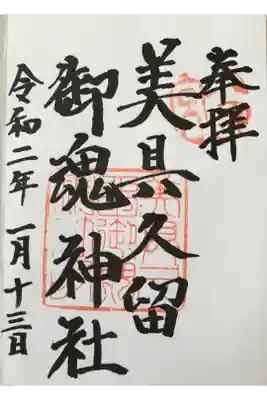 奉拝
美具久留
御魂神社
令和二年 一月十三日